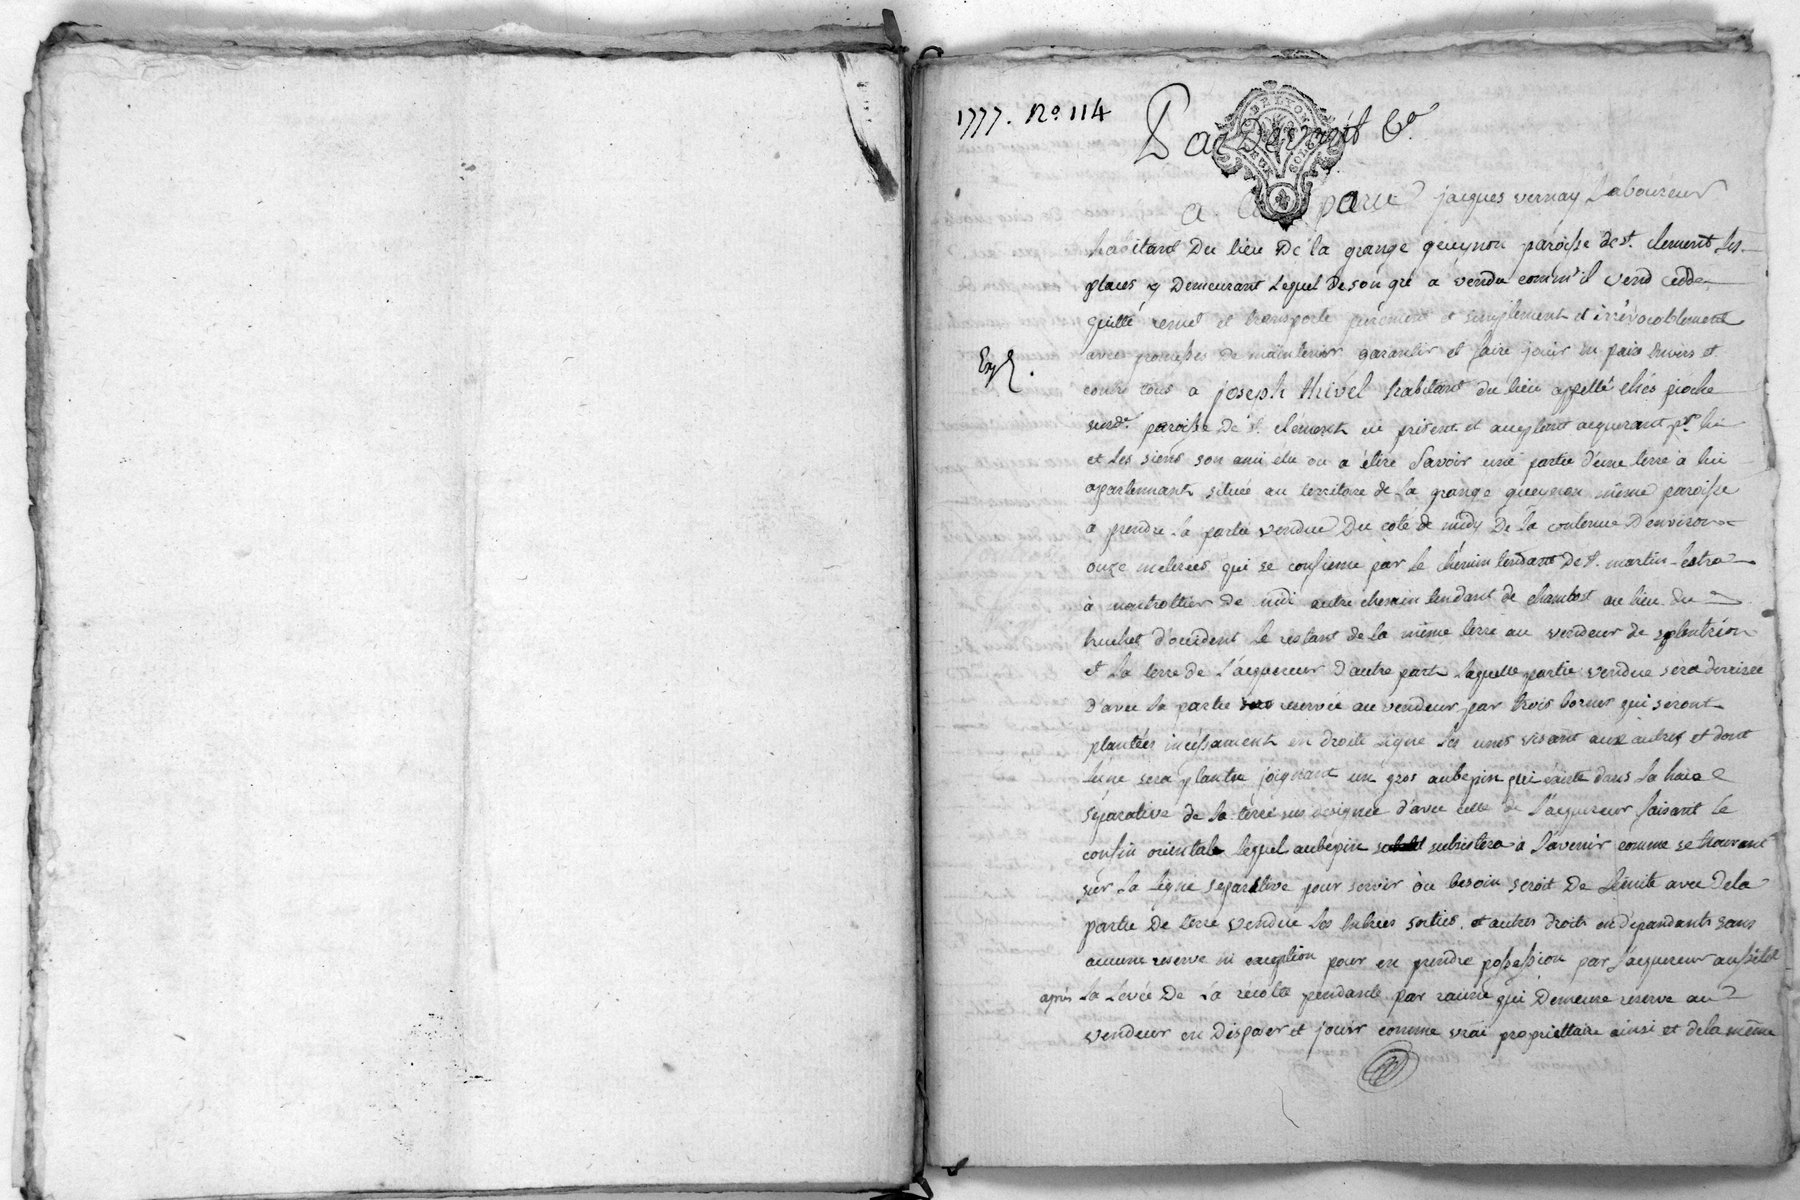 1777. No. 114
Par Devant &a.
DE LYON
a Comparu jacques vernay Laboureur
habitant Du lieu De la grange queynon paroisse de st. clement les
places y Demeurant Lequel De son gré a vendu comm'il vend cedde
quitte remet et transporte purement et simplement et irrévocablement
avec promesses de maintenir garantir et faire jouir en paix envers et
contre tous a joseph thivel habitant du lieu appellé chés pioche
susde. paroisse De st. clement cy présent et acceptant acquerant pr. lui
et les siens son ami élu ou a élire Savoir une partie d'une terre à lui
apartennant située au territoire de la grange queynon même paroisse
a prendre la partie vendue Du coté de midy De la contenue D'environ
onze meterées qui se confienne par le chémin tendant De st. martin Lestra
à montrottier de midi autre chemin tendant de chambost au lieu du
huchet d'occident le restant de la même terre au vendeur de septentrion
et la terre de l'acquereur d'autre part laquelle partie vendue sera divisée
d'avec la partie reservée au vendeur par trois bornes qui seront
plantées incéssament en droite ligne les unes visant aux autres et dont
l'une sera plantée joignant un gros aubepin qui éxiste dans la haie
séparative de la terre sus designée d'avec celle de l'acquereur faisant le
confin oriental lequel aubépin subsistera à l'avenir comme se trouvant
sur la ligne separative pour servir où besoin seroit De limite avec De la
partie De terre vendue les entrées sorties et autres droits en dépandants sans
aucune reserve ni exception pour en prendre possession par l'acquereur aussitôt
après la levée De la récolte pendante par racine qui Demeure reserve au
vendeur en disposer et jouir comme vrai propriettaire ainsi et de la même